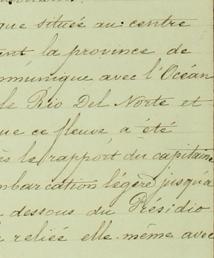 que située au centre
ant la province de
mmunique avec l'Océan
le Rio Del Norte et
que ce fleuve a été
ès le rapport du capitaine
mbarcation légère jusqu'à
dessous du Présidio
reliée elle même avec